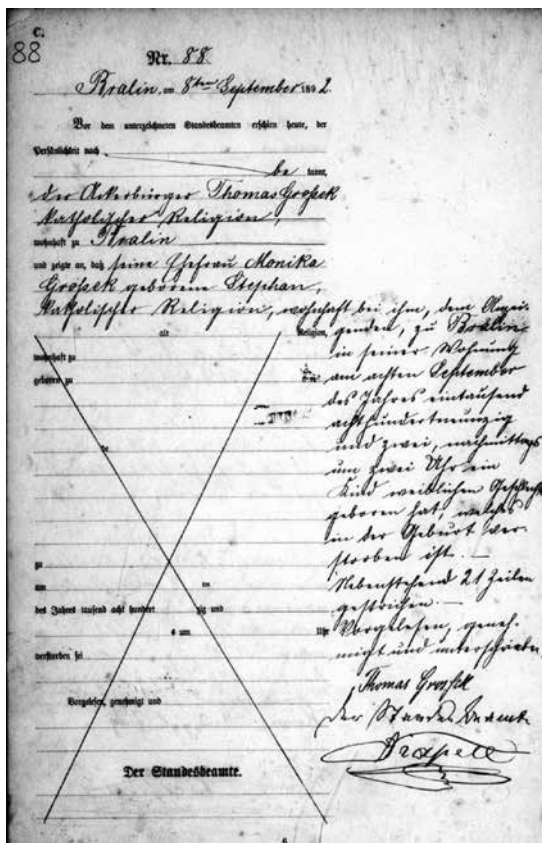 C.
88
Nr. 88
Bralin, am 8ten September 1892.
Vor dem unterzeichneten Standesbeamten erschien heute, der
Persönlichkeit nach
be kannt,
der Ackerbürger Thomas Grossek
katholischer Religion,
wohnhaft zu Bralin
und zeigte an, daß seine Ehefrau Monika
Grossek geborene Stephan,
katholischer Religion, wohnhaft bei ihm, dem Anzei-
genden, zu Bralin
in seiner Wohnung
am achten September
des Jahres eintausend
achthundertneunzig
und zwei, nachmittags
um zwei Uhr ein
Kind weiblichen Geschlechts
geboren hat, welches
in der Geburt ver-
storben ist. —
Nebenstehend 21 Zeilen
gestrichen. —
Vorgelesen, geneh-
migt und unterschrieben
Thomas Grossek
Der Standesbeamte
alt
Religion,
wohnhaft zu
geboren zu
zu
am
des Jahres tausend acht hundert zig und
um Uhr
verstorben sei
Vorgelesen, genehmigt und
Der Standesbeamte.